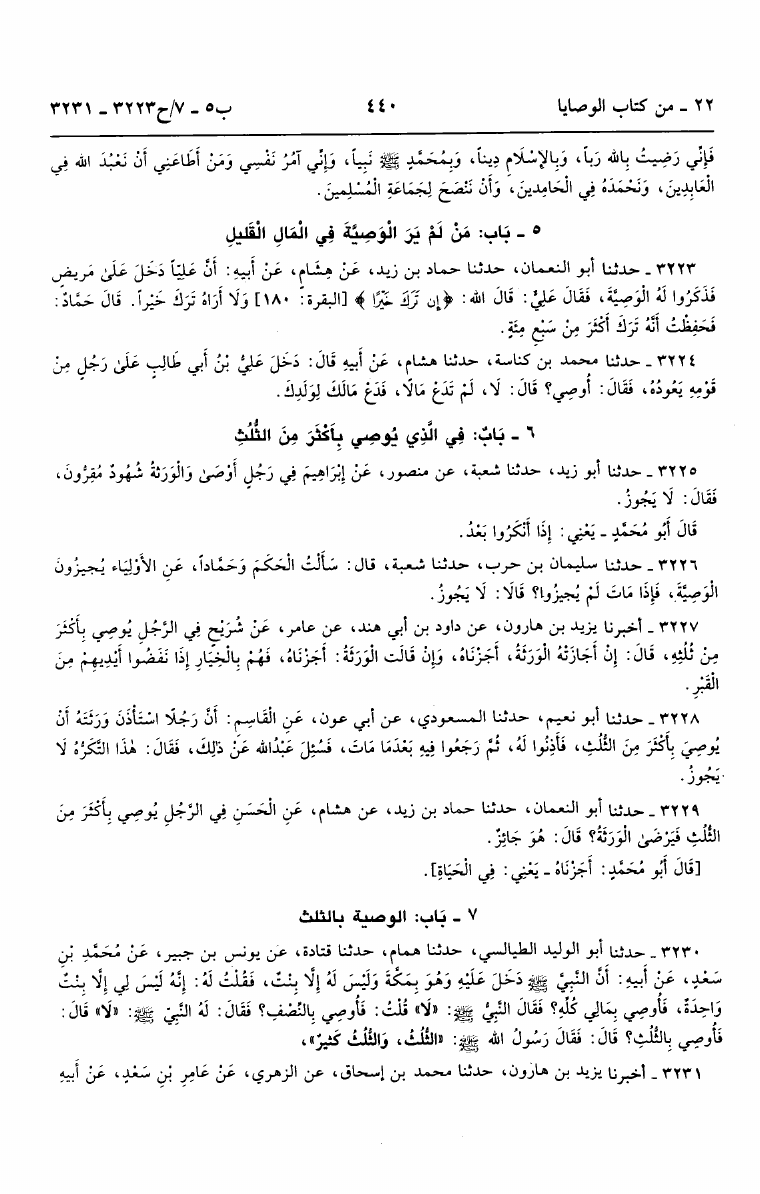 ٢٢ ـ من كتاب الوصايا ٤٤٠ ب٥ ـ ٧/ح٣٢٢٣ ـ ٣٢٣١
فَإِنِّي رَضِيتُ بِاللهِ رَبّاً، وَبِالإِسْلَامِ دِيناً، وَبِمُحَمَّدٍ ﷺ نَبِياً، وَإِنِّي آمُرُ نَفْسِي وَمَنْ أَطَاعَنِي أَنْ نَعْبُدَ الله فِي
الْعَابِدِينَ، وَنَحْمَدَهُ فِي الْحَامِدِينَ، وَأَنْ نَنْصَحَ لِجَمَاعَةِ الْمُسْلِمِينَ.
٥ ـ بَاب: مَنْ لَمْ يَرَ الْوَصِيَّةَ فِي الْمَالِ الْقَلِيلِ
٣٢٢٣ ـ حدثنا أبو النعمان، حدثنا حماد بن زيد، عَنْ هِشَامٍ، عَنْ أَبِيهِ: أَنَّ عَلِيّاً دَخَلَ عَلَىٰ مَرِيضٍ
فَذَكَرُوا لَهُ الْوَصِيَّةَ، فَقَالَ عَلِيٌّ: قَالَ الله: ﴿إِن تَرَكَ خَيْرًا﴾ [البقرة: ١٨٠] وَلَا أَرَاهُ تَرَكَ خَيْراً. قَالَ حَمَّادٌ:
فَحَفِظْتُ أَنَّهُ تَرَكَ أَكْثَرَ مِنْ سَبْعِ مِئَةٍ.
٣٢٢٤ ـ حدثنا محمد بن كناسة، حدثنا هشام، عَنْ أَبِيهِ قَالَ: دَخَلَ عَلِيُّ بْنُ أَبي طَالِبٍ عَلَىٰ رَجُلٍ مِنْ
قَوْمِهِ يَعُودُهُ، فَقَالَ: أُوصِي؟ قَالَ: لَا، لَمْ تَدَعْ مَالًا، فَدَعْ مَالَكَ لِوَلَدِكَ.
٦ ـ بَابٌ: فِي الَّذِي يُوصِي بِأَكْثَرَ مِنَ الثُّلُثِ
٣٢٢٥ ـ حدثنا أبو زيد، حدثنا شعبة، عن منصور، عَنْ إِبْرَاهِيمَ فِي رَجُلٍ أَوْصَىٰ وَالْوَرَثَةُ شُهُودٌ مُقِرُّونَ،
فَقَالَ: لَا يَجُوزُ.
قَالَ أَبُو مُحَمَّدٍ ـ يَعْنِي: إِذَا أَنْكَرُوا بَعْدُ.
٣٢٢٦ ـ حدثنا سليمان بن حرب، حدثنا شعبة، قال: سَأَلْتُ الْحَكَمَ وَحَمَّاداً، عَنِ الأَوْلِيَاءِ يُجِيزُونَ
الْوَصِيَّةَ، فَإِذَا مَاتَ لَمْ يُجِيزُوا؟ قَالَا: لَا يَجُوزُ.
٣٢٢٧ ـ أخبرنا يزيد بن هارون، عن داود بن أبي هند، عن عامر، عَنْ شُرَيْحٍ فِي الرَّجُلِ يُوصِي بِأَكْثَرَ
مِنْ ثُلُثِهِ، قَالَ: إِنْ أَجَازَتْهُ الْوَرَثَةُ، أَجَزْنَاهُ، وَإِنْ قَالَتِ الْوَرَثَةُ: أَجَزْنَاهُ، فَهُمْ بِالْخِيَارِ إِذَا نَفَضُوا أَيْدِيهِمْ مِنَ
الْقَبْرِ.
٣٢٢٨ ـ حدثنا أبو نعيم، حدثنا المسعودي، عن أبي عون، عَنِ الْقَاسِمِ: أَنَّ رَجُلًا اسْتَأْذَنَ وَرَثَتَهُ أَنْ
يُوصِيَ بِأَكْثَرَ مِنَ الثُّلُثِ، فَأَذِنُوا لَهُ، ثُمَّ رَجَعُوا فِيهِ بَعْدَمَا مَاتَ، فَسُئِلَ عَبْدُالله عَنْ ذٰلِكَ، فَقَالَ: هٰذَا التَّكَرُّهُ لَا
يَجُوزُ.
٣٢٢٩ ـ حدثنا أبو النعمان، حدثنا حماد بن زيد، عن هشام، عَنِ الْحَسَنِ فِي الرَّجُلِ يُوصِي بِأَكْثَرَ مِنَ
الثُّلُثِ فَيَرْضَىٰ الْوَرَثَةُ؟ قَالَ: هُوَ جَائِزٌ.
[قَالَ أَبُو مُحَمَّدٍ: أَجَزْنَاهُ ـ يَعْنِي: فِي الْحَيَاةِ].
٧ ـ بَاب: الوصية بالثلث
٣٢٣٠ ـ حدثنا أبو الوليد الطيالسي، حدثنا همام، حدثنا قتادة، عن يونس بن جبير، عَنْ مُحَمَّدِ بْنِ
سَعْدٍ، عَنْ أَبِيهِ: أَنَّ النَّبِيَّ ﷺ دَخَلَ عَلَيْهِ وَهُوَ بِمَكَّةَ وَلَيْسَ لَهُ إِلَّا بِنْتٌ، فَقُلْتُ لَهُ: إِنَّهُ لَيْسَ لِي إِلَّا بِنْتٌ
وَاحِدَةٌ، فَأُوصِي بِمَالِي كُلِّهِ؟ فَقَالَ النَّبِيُّ ﷺ: «لَا» قُلْتُ: فَأُوصِي بِالنِّصْفِ؟ فَقَالَ: لَهُ النَّبِيّ ﷺ: «لَا» قَالَ:
فَأُوصِي بِالثُّلُثِ؟ قَالَ: فَقَالَ رَسُولُ الله ﷺ: «الثُّلُثُ، وَالثُّلُثُ كَثيرٌ»،
٣٢٣١ ـ أخبرنا يزيد بن هارون، حدثنا محمد بن إسحاق، عن الزهري، عَنْ عَامِرِ بْنِ سَعْدٍ، عَنْ أَبِيهِ